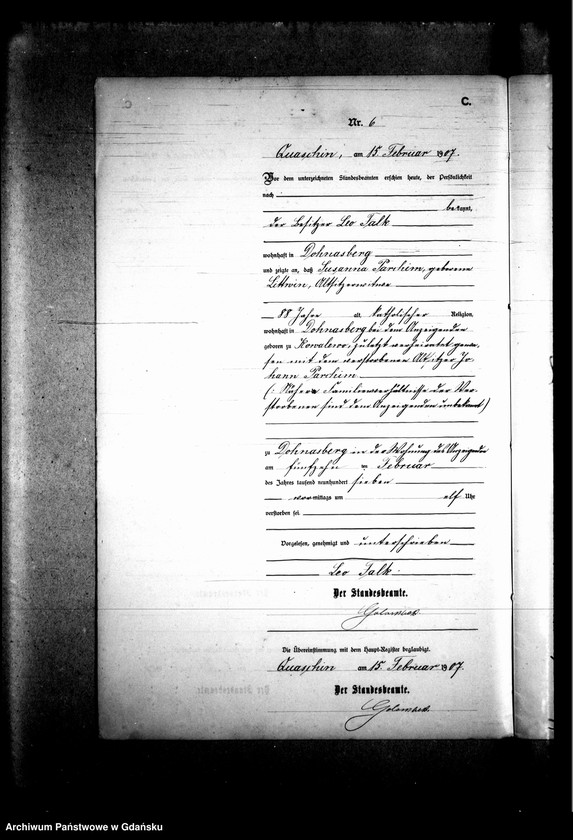 C.
Nr. 6
Quaschin, am 15. Februar 1907.
Vor dem unterzeichneten Standesbeamten erschien heute, der Persönlichkeit
nach
bekannt,
der Besitzer Leo Talk
wohnhaft in Dohnasberg
und zeigte an, daß Susanna Parchim, geborene
Littwin, Altsitzerwitwe
88 Jahre alt, katholischer Religion,
wohnhaft in Dohnasberg bei dem Anzeigenden
geboren zu Kowalewo, zuletzt verheiratet gewe-
sen mit dem verstorbenen Altsitzer Jo-
hann Parchim
(: Nähere Familienverhältnisse der Ver-
storbenen sind dem Anzeigenden unbekannt)
zu Dohnasberg in der Wohnung des Anzeigenden
am fünfzehn ten Februar
des Jahres tausend neunhundert sieben
vormittags um elf Uhr
verstorben sei.
Vorgelesen, genehmigt und unterschrieben
Leo Talk.
Der Standesbeamte.
Die Übereinstimmung mit dem Haupt-Register beglaubigt.
Quaschin am 15. Februar 1907.
Der Standesbeamte.
Archiwum Państwowe w Gdańsku